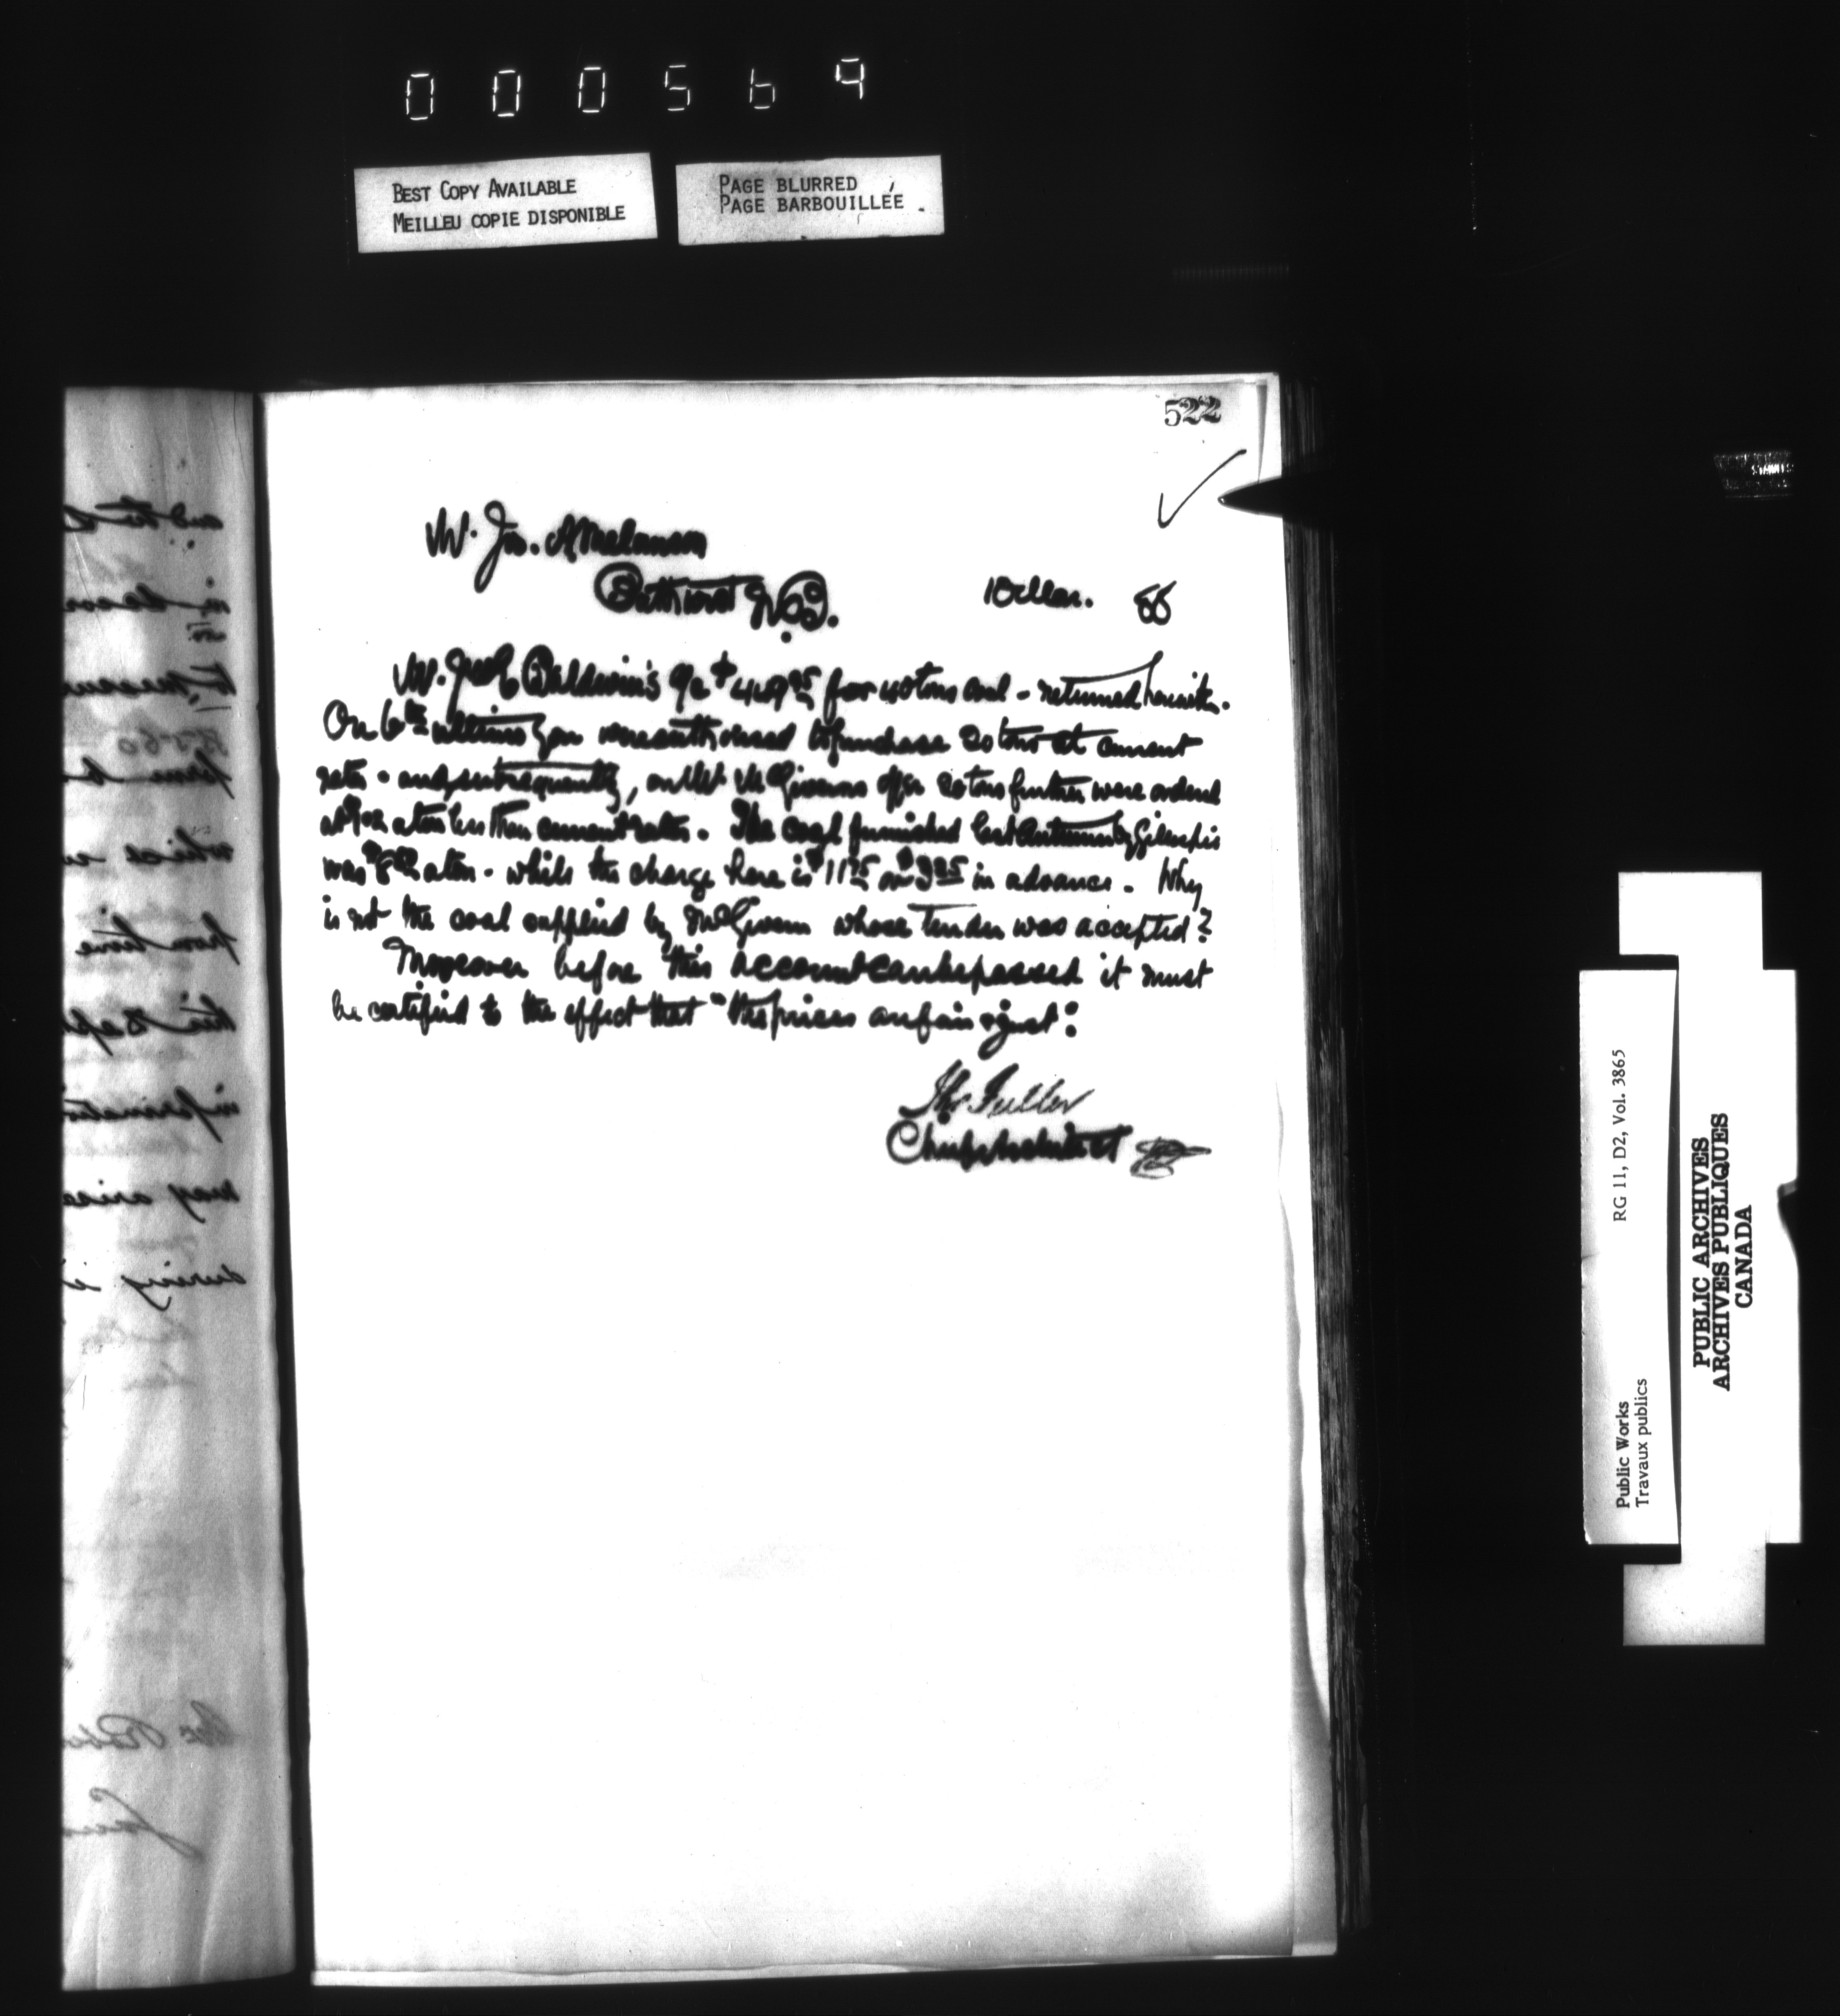 000569
BEST COPY AVAILABLE
MEILLEU COPIE DISPONIBLE
PAGE BLURRED
PAGE BARBOUILLÉE
522
W. Jos. A Melanson
Bathurst N.B.
10 Mar. 88
W. Baldwin's a/c $ for 40 tons coal - returned herewith.
On 6th ultimo you were authorised to purchase 20 tons at current
rates - and subsequently, on Mr. McGivern's offer 20 tons further were ordered
a ton less than current rates. The coal furnished last Autumn by Gillespie
was $8 a ton - whils the charge here is $11 or $3 in advance. Why
is not the coal supplied by McGivern whose Tender was accepted?
Moreover before this account can be passed it must
be certified to the effect that "the prices are fair & just".
Thos Fuller
Chief Architect
and to
in
which
from time
this Dep
informatio
may arise
during
RG 11, D2, Vol. 3865
Public Works
Travaux publics
PUBLIC ARCHIVES
ARCHIVES PUBLIQUES
CANADA